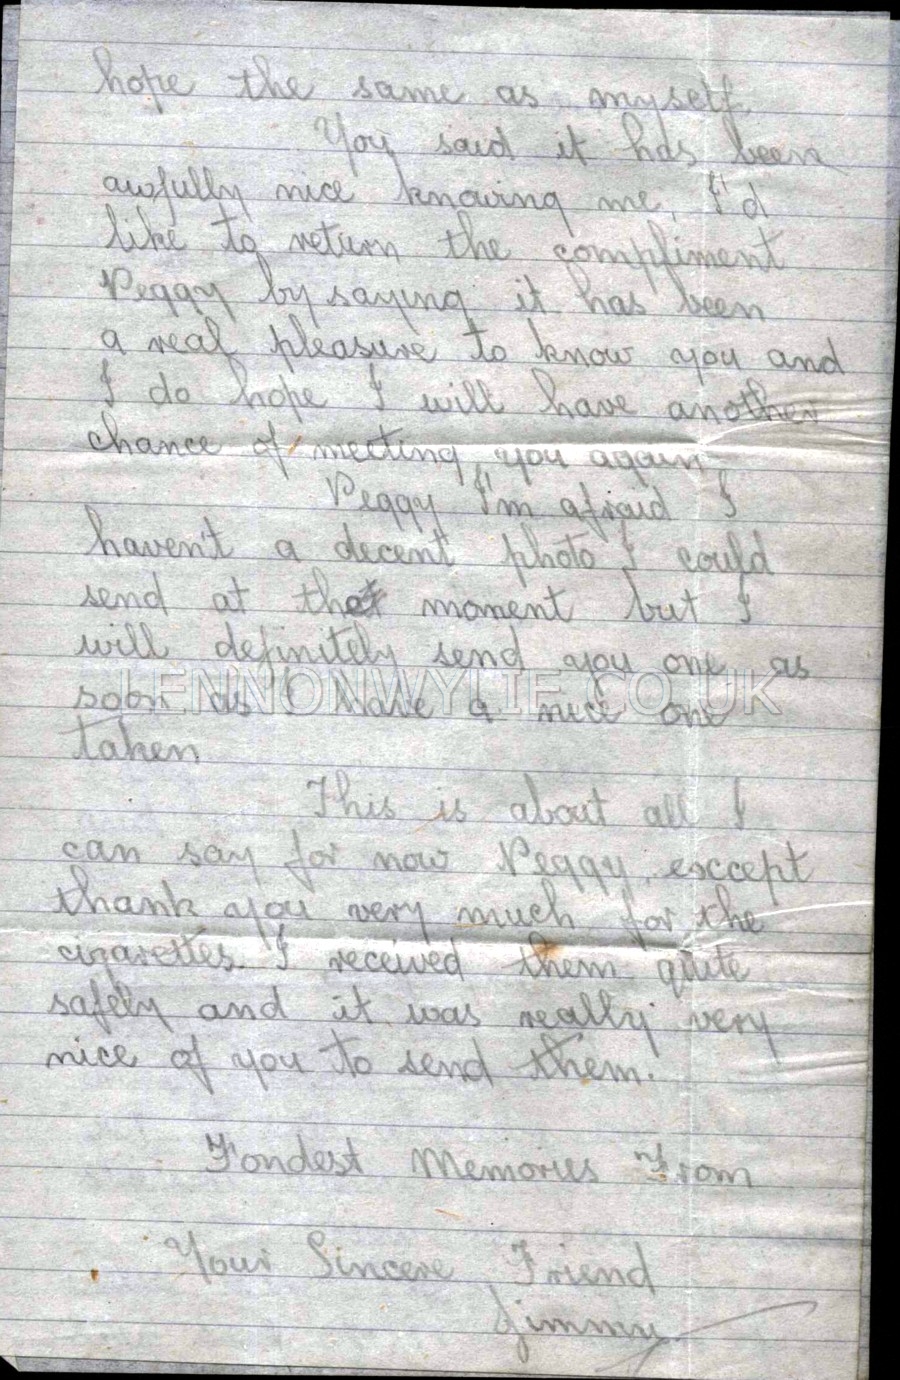 hope the same as myself.
You said it has been
awfully nice knowing me, I'd
like to return the compliment
Peggy by saying it has been
a real pleasure to know you and
I do hope I will have another
chance of meeting you again
Peggy I'm afraid I
haven't a decent photo I could
send at that moment but I
will definitely send you one as
soon as I have a nice one
LENNONWYLIE.CO.UK
taken
This is about all I
can say for now Peggy, exccept
thank you very much for the
cigarettes. I received them quite
safely and it was really very
nice of you to send them.
Fondest Memories From
Your Sincere Friend
Jimmy